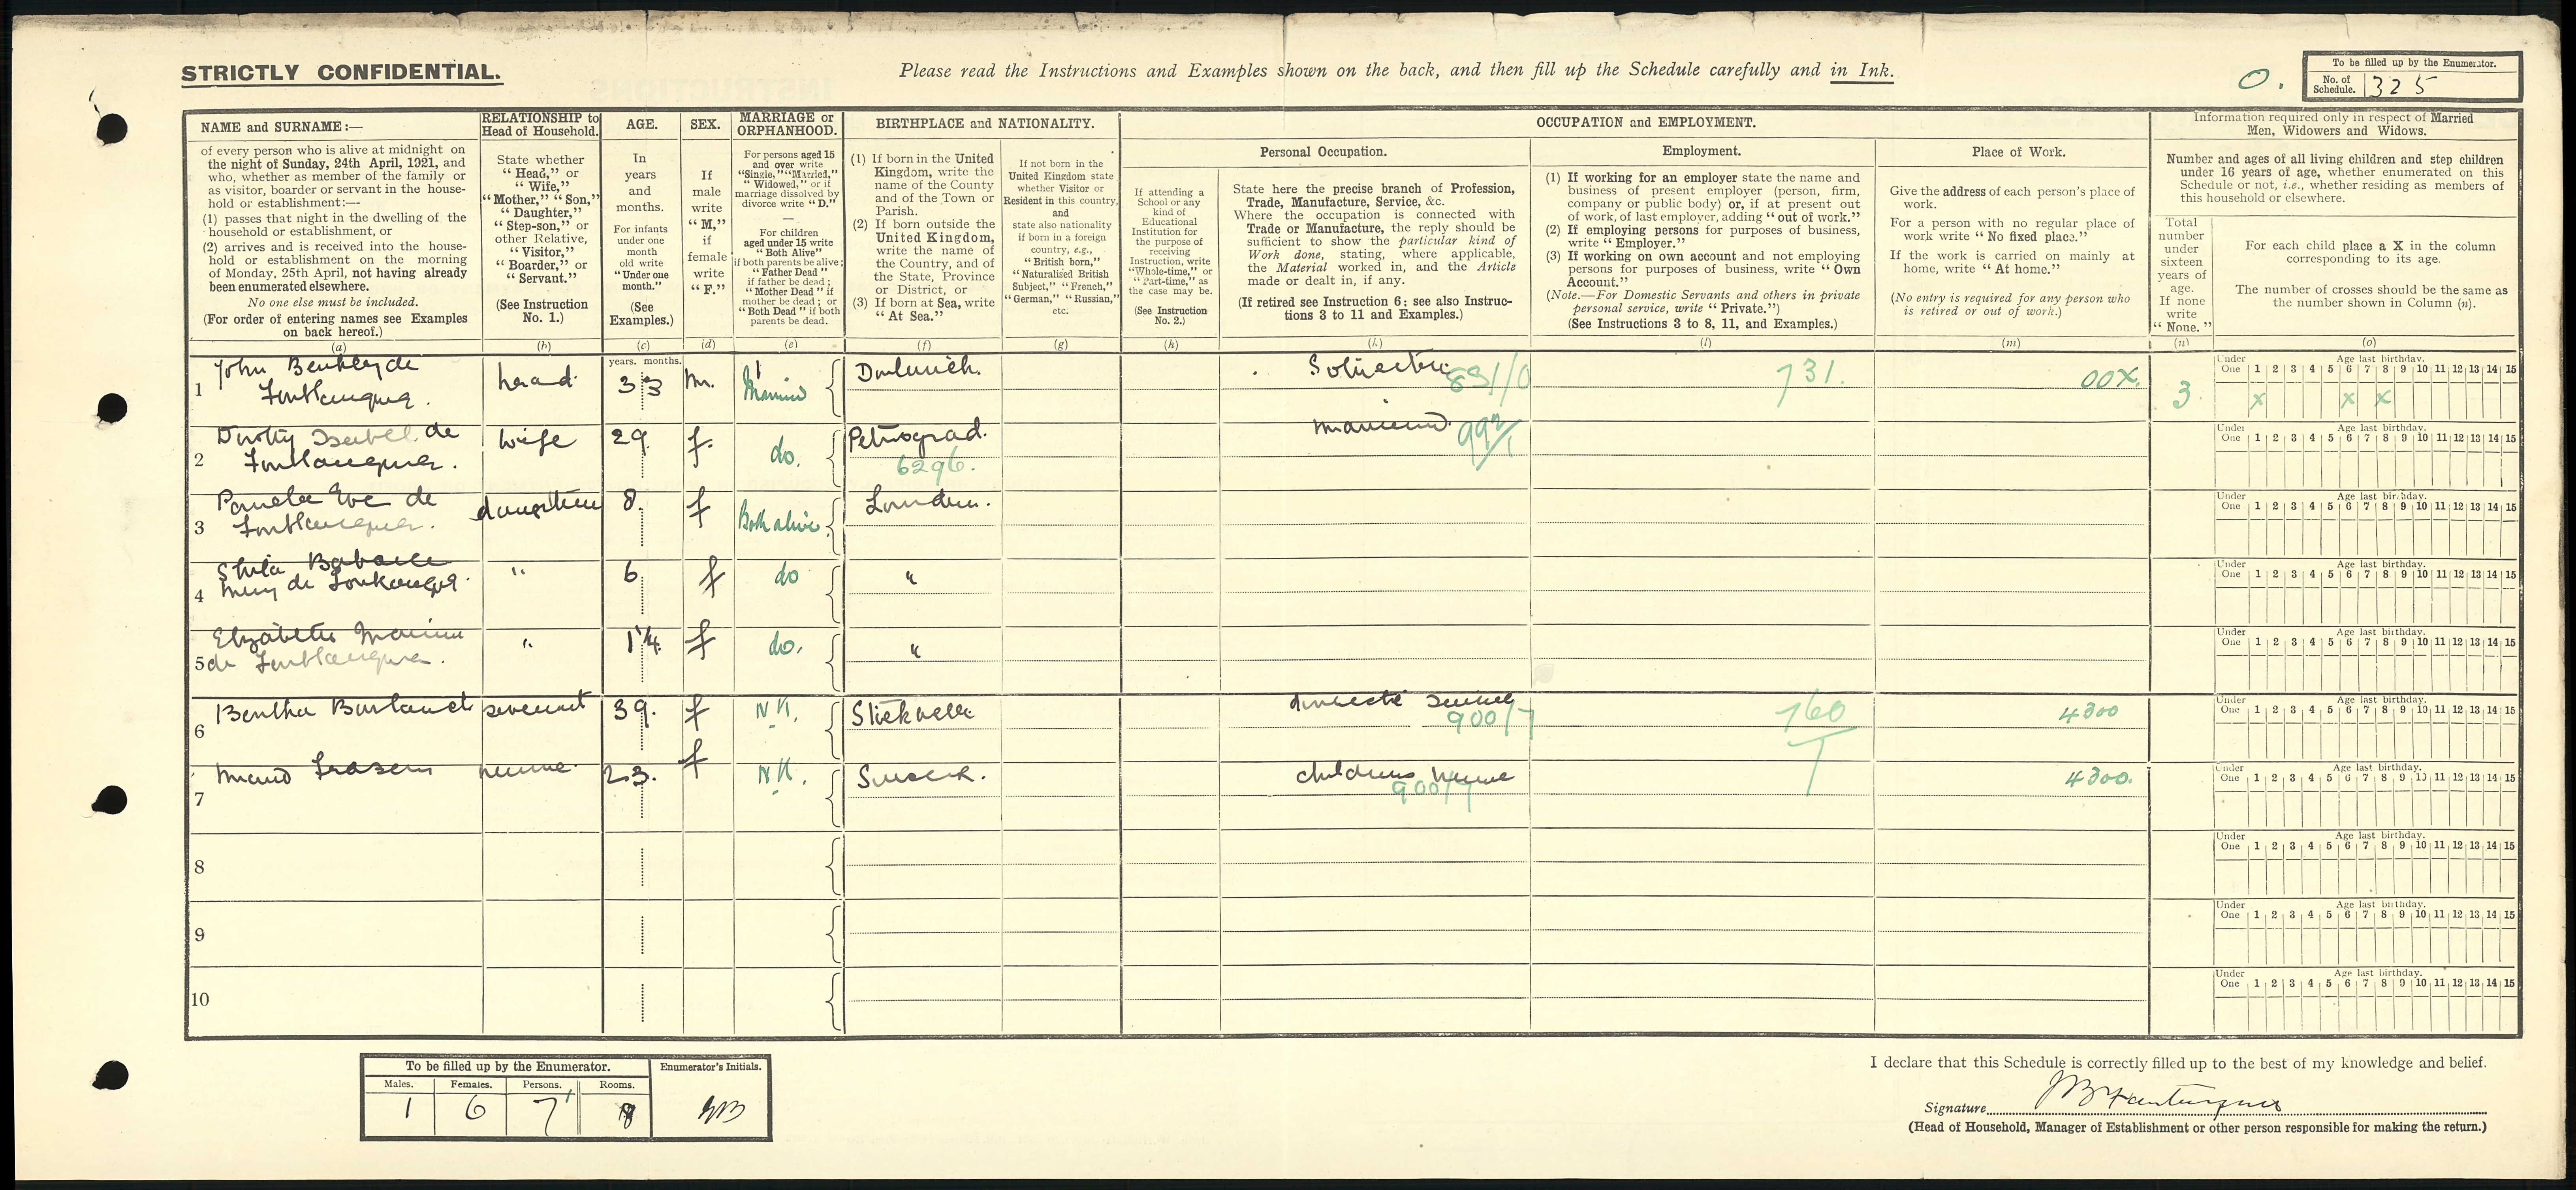 STRICTLY CONFIDENTIAL.
Please read the Instructions and Examples shown on the back, and then fill up the Schedule carefully and in Ink.
O.
To be filled up by the Enumerator.
No. of Schedule. 325
NAME and SURNAME:—
of every person who is alive at midnight on
the night of Sunday, 24th April, 1921, and
who, whether as member of the family or
as visitor, boarder or servant in the house-
hold or establishment:—
(1) passes that night in the dwelling of the
household or establishment, or
(2) arrives and is received into the house-
hold or establishment on the morning
of Monday, 25th April, not having already
been enumerated elsewhere.
No one else must be included.
(For order of entering names see Examples
on back hereof.)
(a)
RELATIONSHIP to
Head of Household.
State whether
"Head," or
"Wife,"
"Mother," "Son,"
"Daughter,"
"Step-son," or
other Relative,
"Visitor,"
"Boarder," or
"Servant."
(See Instruction
No. 1.)
(b)
AGE.
In
years
and
months.
For infants
under one
month
old write
"Under one
month."
(See
Examples.)
(c)
SEX.
If
male
write
"M,"
if
female
write
"F."
(d)
MARRIAGE or
ORPHANHOOD.
For persons aged 15
and over write
"Single," "Married,"
"Widowed," or if
marriage dissolved by
divorce write "D."
—
For children
aged under 15 write
"Both Alive"
if both parents be alive;
"Father Dead"
if father be dead;
"Mother Dead" if
mother be dead; or
"Both Dead" if both
parents be dead.
(e)
BIRTHPLACE and NATIONALITY.
(1) If born in the United
Kingdom, write the
name of the County
and of the Town or
Parish.
(2) If born outside the
United Kingdom,
write the name of
the Country, and of
the State, Province
or District, or
(3) If born at Sea, write
"At Sea."
(f)
If not born in the
United Kingdom state
whether Visitor or
Resident in this country,
and
state also nationality
if born in a foreign
country, e.g.,
"British born,"
"Naturalised British
Subject," "French,"
"German," "Russian,"
etc.
(g)
OCCUPATION and EMPLOYMENT.
Personal Occupation.
If attending a
School or any
kind of
Educational
Institution for
the purpose of
receiving
Instruction, write
"Whole-time," or
"Part-time," as
the case may be.
(See Instruction
No. 2.)
(h)
State here the precise branch of Profession,
Trade, Manufacture, Service, &c.
Where the occupation is connected with
Trade or Manufacture, the reply should be
sufficient to show the particular kind of
Work done, stating, where applicable,
the Material worked in, and the Article
made or dealt in, if any.
(If retired see Instruction 6; see also Instruc-
tions 3 to 11 and Examples.)
(k)
Employment.
(1) If working for an employer state the name and
business of present employer (person, firm,
company or public body) or, if at present out
of work, of last employer, adding "out of work."
(2) If employing persons for purposes of business,
write "Employer."
(3) If working on own account and not employing
persons for purposes of business, write "Own
Account."
(Note.—For Domestic Servants and others in private
personal service, write "Private.")
(See Instructions 3 to 8, 11, and Examples.)
(l)
Place of Work.
Give the address of each person's place of
work.
For a person with no regular place of
work write "No fixed place."
If the work is carried on mainly at
home, write "At home."
(No entry is required for any person who
is retired or out of work.)
(m)
Information required only in respect of Married
Men, Widowers and Widows.
Number and ages of all living children and step children
under 16 years of age, whether enumerated on this
Schedule or not, i.e., whether residing as members of
this household or elsewhere.
Total
number
under
sixteen
years of
age.
If none
write
"None."
(n)
For each child place a X in the column
corresponding to its age.
The number of crosses should be the same as
the number shown in Column (n).
(o)
years. months.
Under One Age last birthday. 1 2 3 4 5 6 7 8 9 10 11 12 13 14 15
1 John de Fonblanque. head. 33 m. Married Dulwich. Solicitor 831/0 731. 00X. 3 x x x
Under One Age last birthday. 1 2 3 4 5 6 7 8 9 10 11 12 13 14 15
2 Dorothy Isabel de Fonblanque. wife 29. f. do. Petrograd. 6296. married. 992/1
Under One Age last birthday. 1 2 3 4 5 6 7 8 9 10 11 12 13 14 15
3 Pamela Eve de Fonblanque. daughter 8. f Both alive London.
Under One Age last birthday. 1 2 3 4 5 6 7 8 9 10 11 12 13 14 15
4 de Fonblanque. " 6. f do "
Under One Age last birthday. 1 2 3 4 5 6 7 8 9 10 11 12 13 14 15
5 Elizabeth de Fonblanque. " 1¼. f do. "
Under One Age last birthday. 1 2 3 4 5 6 7 8 9 10 11 12 13 14 15
6 Bertha servant 39. f N.K. domestic 900/7 760/1 4300
Under One Age last birthday. 1 2 3 4 5 6 7 8 9 10 11 12 13 14 15
7 Maud nurse. 23. f N.K. Sussex. childrens nurse 900/7 4300.
Under One Age last birthday. 1 2 3 4 5 6 7 8 9 10 11 12 13 14 15
8
Under One Age last birthday. 1 2 3 4 5 6 7 8 9 10 11 12 13 14 15
9
Under One Age last birthday. 1 2 3 4 5 6 7 8 9 10 11 12 13 14 15
10
Under One Age last birthday. 1 2 3 4 5 6 7 8 9 10 11 12 13 14 15
To be filled up by the Enumerator.
Enumerator's Initials.
Males. Females. Persons. Rooms.
1 6 7 8
I declare that this Schedule is correctly filled up to the best of my knowledge and belief.
Signature
(Head of Household, Manager of Establishment or other person responsible for making the return.)